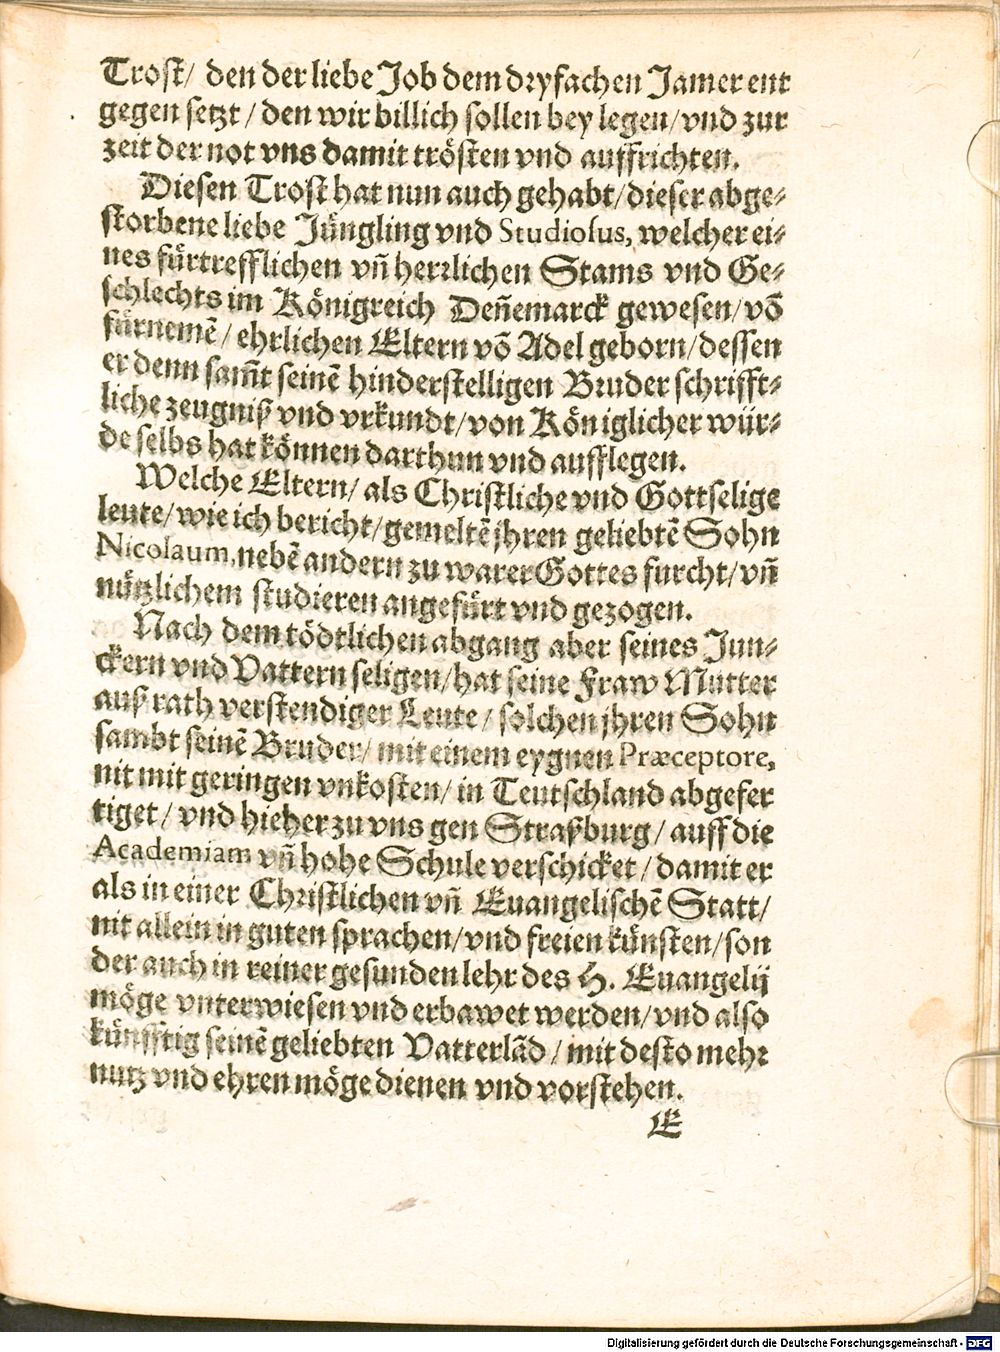 Trost/ den der liebe Job dem dryfachen Jamer ent
gegen setzt/ den wir billich sollen bey legen/ vnd zur
zeit der not vns damit trösten vnd auffrichten.
Diesen Trost hat nun auch gehabt/ dieser abge-
storbene liebe Jüngling vnd Studiosus, welcher ei-
nes fürtrefflichen vñ herrlichen Stams vnd Ge-
schlechts im Königreich Deñemarck gewesen/ võ
fürnemẽ/ ehrlichen Eltern võ Adel geborn/ dessen
er denn sam̃t seinẽ hinderstelligen Bruder schrifft-
liche zeugniß vnd vrkundt/ von Königlicher wür-
de selbs hat können darthun vnd aufflegen.
Welche Eltern/ als Christliche vnd Gottselige
leute/ wie ich bericht/ gemeltẽ jhren geliebtẽ Sohn
Nicolaum, nebẽ andern zu warer Gottes furcht/ vñ
nützlichem studieren angefürt vnd gezogen.
Nach dem tödtlichen abgang aber seines Jun-
ckern vnd Vattern seligen/ hat seine Fraw Mutter
auß rath verstendiger Leute/ solchen jhren Sohn
sambt seinẽ Bruder/ mit einem eygnen Præceptore,
nit mit geringen vnkosten/ in Teutschland abgefer
tiget/ vnd hieher zu vns gen Straßburg/ auff die
Academiam vñ hohe Schule verschicket/ damit er
als in einer Christlichen vñ Euangelischẽ Statt/
nit allein in guten sprachen/ vnd freien künsten/ son
der auch in reiner gesunden lehr des H. Euangelij
möge vnterwiesen vnd erbawet werden/ vnd also
künfftig seinẽ geliebten Vatterlãd/ mit desto mehr
nutz vnd ehren möge dienen vnd vorstehen.
E
Digitalisierung gefördert durch die Deutsche Forschungsgemeinschaft - DFG